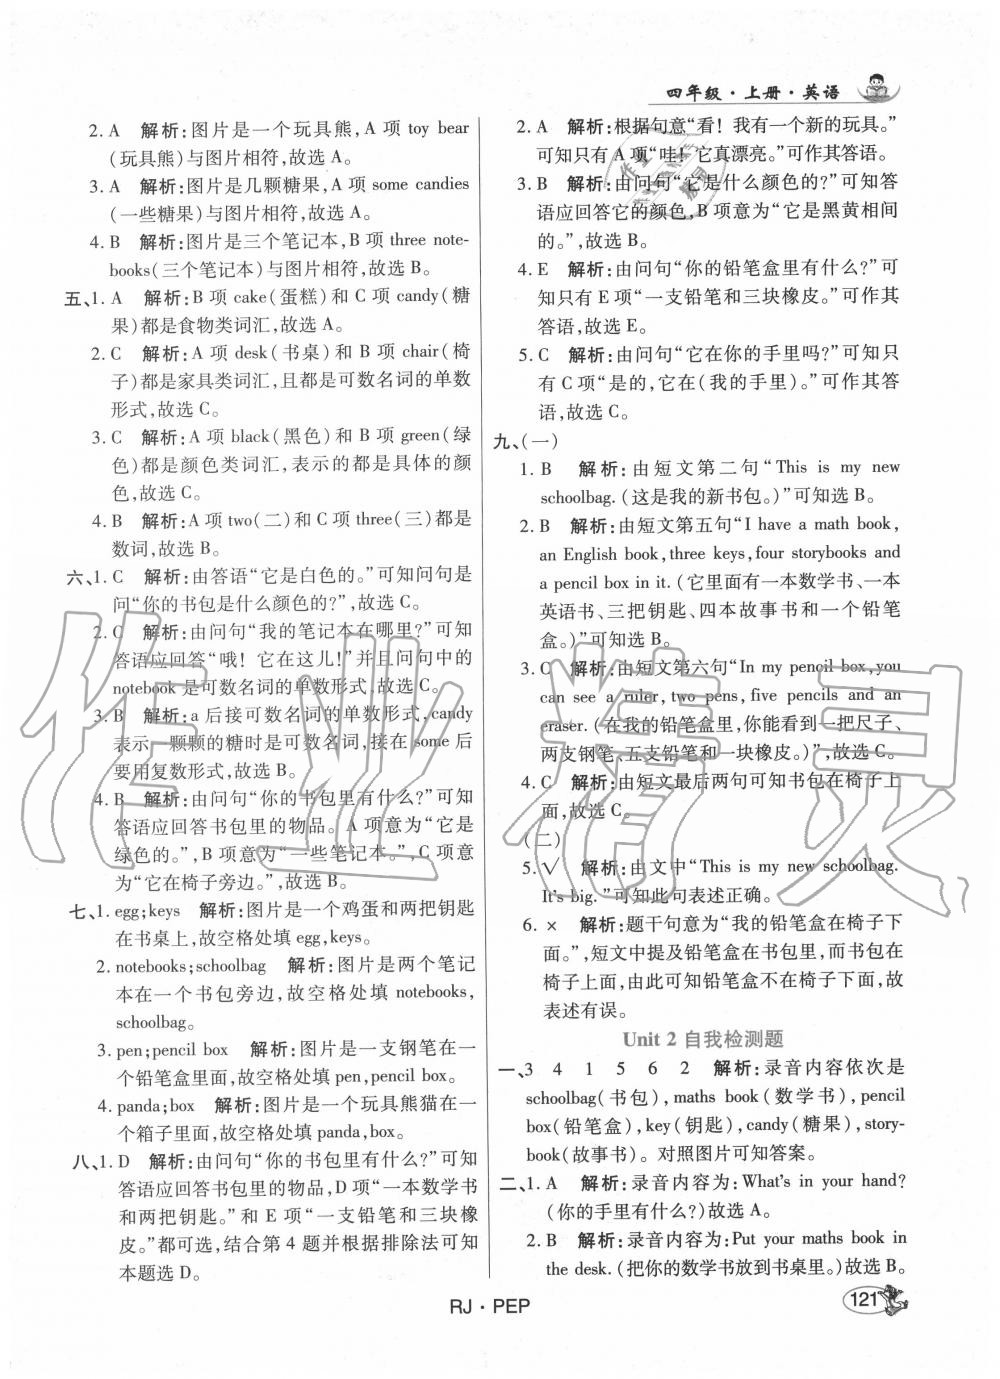 四年级·上册·英语
2. A 解析:图片是一个玩具熊,A 项 toy bear
(玩具熊)与图片相符,故选 A。
3. A 解析:图片是几颗糖果,A 项 some candies
(一些糖果)与图片相符,故选 A。
4. B 解析:图片是三个笔记本,B 项 three note-
books(三个笔记本)与图片相符,故选 B。
五、1. A 解析:B 项 cake(蛋糕)和 C 项 candy(糖
果)都是食物类词汇,故选 A。
2. C 解析:A 项 desk(书桌)和 B 项 chair(椅
子)都是家具类词汇,且都是可数名词的单数
形式,故选 C。
3. C 解析:A 项 black(黑色)和 B 项 green(绿
色)都是颜色类词汇,表示的都是具体的颜
色,故选 C。
4. B 解析:A 项 two(二)和 C 项 three(三)都是
数词,故选 B。
六、1. C 解析:由答语“它是白色的。”可知问句是
问“你的书包是什么颜色的?”,故选 C。
2. C 解析:由问句“我的笔记本在哪里?”可知
答语应回答“哦!它在这儿!”并且问句中的
notebook 是可数名词的单数形式,故选 C。
3. B 解析:a 后接可数名词的单数形式,candy
表示一颗颗的糖时是可数名词,接在 some 后
要用复数形式,故选 B。
4. B 解析:由问句“你的书包里有什么?”可知
答语应回答书包里的物品。A 项意为“它是
绿色的。”,B 项意为“一些笔记本。”,C 项意
为“它在椅子旁边。”,故选 B。
七、1. egg;keys 解析:图片是一个鸡蛋和两把钥匙
在书桌上,故空格处填 egg,keys。
2. notebooks;schoolbag 解析:图片是两个笔记
本在一个书包旁边,故空格处填 notebooks,
schoolbag。
3. pen;pencil box 解析:图片是一支钢笔在一
个铅笔盒里面,故空格处填 pen,pencil box。
4. panda;box 解析:图片是一个玩具熊猫在一
个箱子里面,故空格处填 panda,box。
八、1. D 解析:由问句“你的书包里有什么?”可知
答语应回答书包里的物品,D 项“一本数学书
和两把钥匙。”和 E 项“一支铅笔和三块橡
皮。”都可选,结合第 4 题并根据排除法可知
本题选 D。
2. A 解析:根据句意“看!我有一个新的玩具。”
可知只有 A 项“哇!它真漂亮。”可作其答语。
3. B 解析:由问句“它是什么颜色的?”可知答
语应回答它的颜色,B 项意为“它是黑黄相间
的。”,故选 B。
4. E 解析:由问句“你的铅笔盒里有什么?”可
知只有 E 项“一支铅笔和三块橡皮。”可作其
答语,故选 E。
5. C 解析:由问句“它在你的手里吗?”可知只
有 C 项“是的,它在(我的手里)。”可作其答
语,故选 C。
九、(一)
1. B 解析:由短文第二句“This is my new
schoolbag.(这是我的新书包。)”可知选 B。
2. B 解析:由短文第五句“I have a math book,
an English book,three keys,four storybooks and
a pencil box in it.(它里面有一本数学书、一本
英语书、三把钥匙、四本故事书和一个铅笔
盒。)”可知选 B。
3. C 解析:由短文第六句“In my pencil box,you
can see a ruler,two pens,five pencils and an
eraser.(在我的铅笔盒里,你能看到一把尺子、
两支钢笔、五支铅笔和一块橡皮。)”,故选 C。
4. C 解析:由短文最后两句可知书包在椅子上
面,故选 C。
(二)
5. √ 解析:由文中“This is my new schoolbag.
It's big.”可知此句表述正确。
6. × 解析:题干句意为“我的铅笔盒在椅子下
面。”,短文中提及铅笔盒在书包里,而书包在
椅子上面,由此可知铅笔盒不在椅子下面,故
表述有误。
Unit 2 自我检测题
一、3 4 1 5 6 2 解析:录音内容依次是
schoolbag(书包),maths book(数学书),pencil
box(铅笔盒),key(钥匙),candy(糖果),story-
book(故事书)。对照图片可知答案。
二、1. A 解析:录音内容为:What's in your hand?
(你的手里有什么?)故选 A。
2. B 解析:录音内容为:Put your maths book in
the desk.(把你的数学书放到书桌里。)故选 B。
RJ·PEP
121
作业精灵